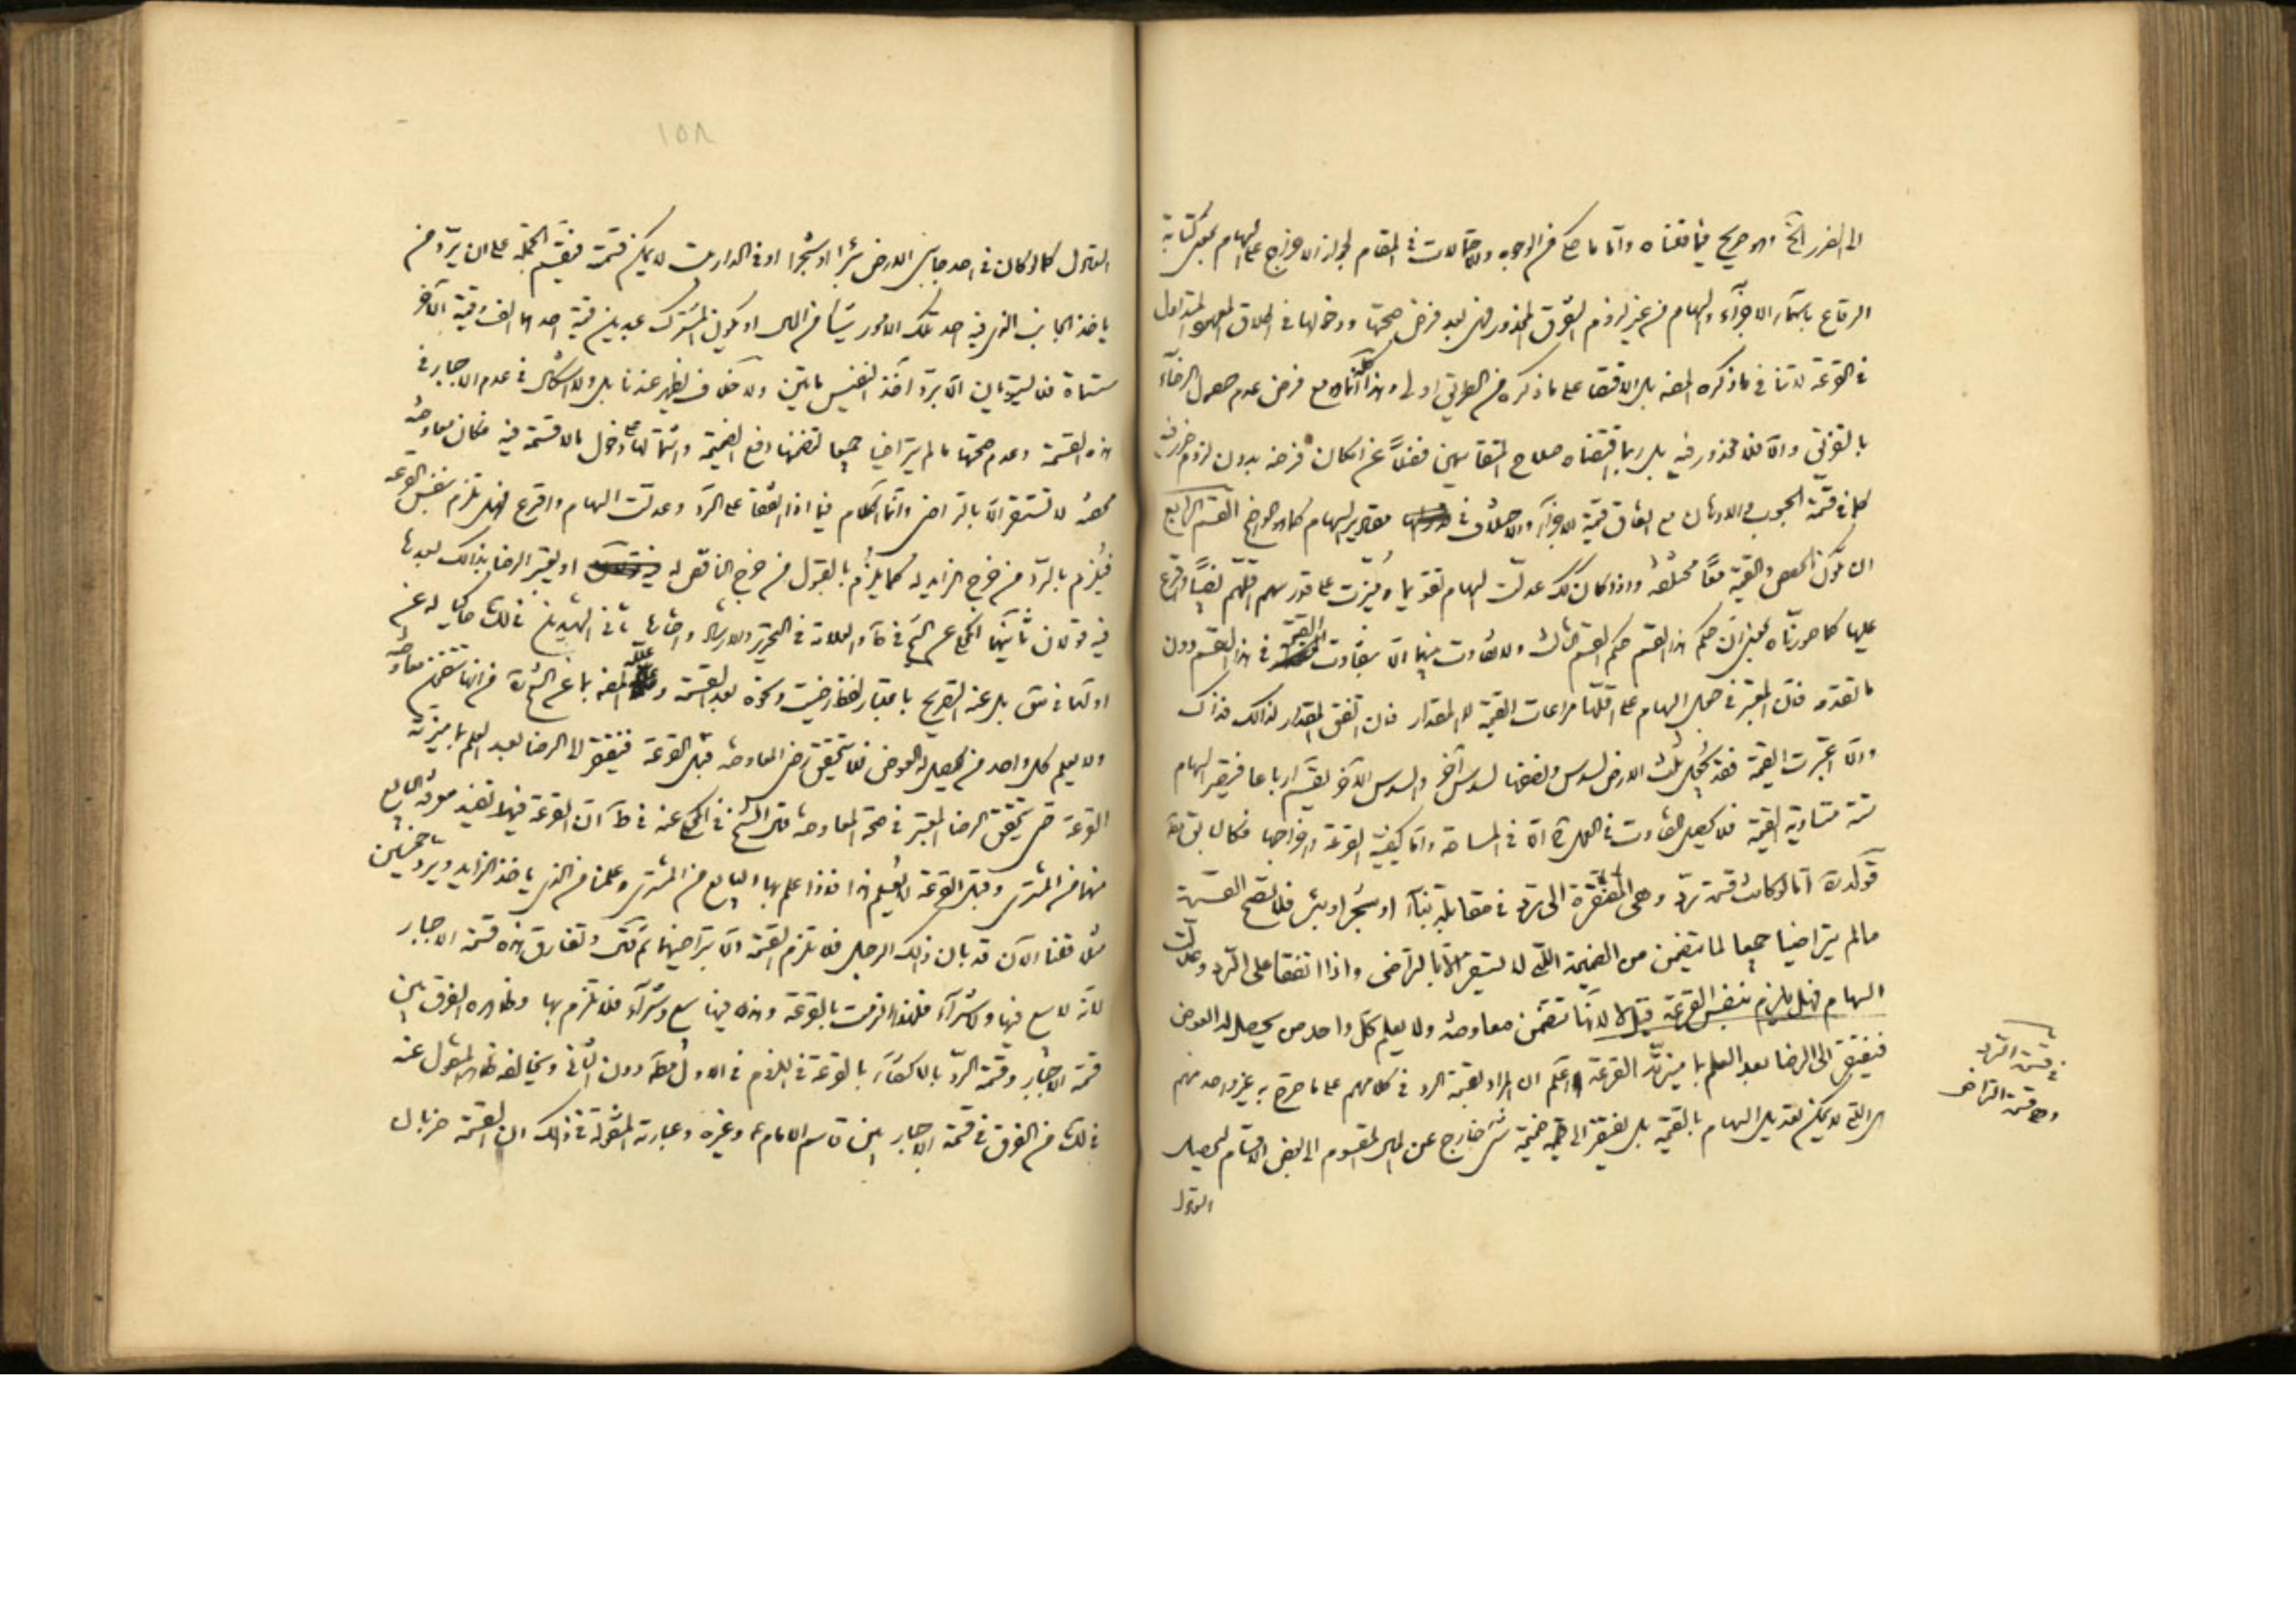 الى الضرر الخ وهو صريح فيما قلناه واما ما حكى من الوجوه والاحتمالات في المقام لجواز الاخراج على السهام بمعنى كتابة
الرقاع باسماء الاجزاء والسهام من غير لزوم التفرق المحذور فهي بعد فرض صحتها ودخولها في اطلاق المتداول
في القرعة لا تنافي ما ذكره المصنف بل الاقتصار على ما ذكره من الطريق اولى وهذا كله مع فرض عدم حصول الرضاء
بالتفرق والا فلا محذور فيه بل ربما اقتضاه صلاح المتقاسمين فضلا عن امكان فرضه بدون لزوم ضرر فيه
كما في قسمة الحبوب والادهان مع اتفاق قيمة الاجزاء والاختلاف في مقادير السهام كما هو واضح القسم الرابع
ان تكون الحصص والقيمة معا مختلفة واذا كان كك عدلت السهام تقويما وميزت على قدر سهم اقلهم نصيبا واقرع
عليها كما صورناه بمعنى ان حكم هذا القسم حكم القسم الثالث ولا تفاوت بينهما الا بتفاوت القيمة في هذا القسم دون
ما تقدم فان المعتبر في جعل السهام على اقلها مراعات القيمة لا المقدار فان اتفق المقدار كذلك فذاك
والا اعتبرت القيمة فقد يجعل ثلث الارض لسدس ونصفها لسدس آخر والسدس الآخر يقسم ارباعا فيصير السهام
ستة متساوية القيمة فلا يحصل التفاوت في الصورة الا في المساحة واما كيفية القرعة واخراجها فكالسابق
قوله اما لو كانت قسمة رد وهي المفتقرة الى رد في مقابلة بناء او شجر او بئر فلا تصح القسمة
ما لم يتراضيا جميعا لما يتضمن من الضميمة التي لا تستقر الا بالتراضي واذا اتفقا على الرد وعدلت
السهام فهل يلزم بنفس القرعة قيل لا لانها تتضمن معاوضة ولا يعلم كل واحد من يحصل له العوض
فيفتقر الى الرضا بعد العلم بما ميزته القرعة اعلم ان المراد بقسمة الرد في كلامهم على ما صرح به غير واحد منهم
هي التي لا يمكن تعديل السهام بالقيمة بل يفتقر الى ضميمة شيء خارج عن المال المقسوم الى بعض الاقسام ليحصل
التعادل
في قسمة الرد
وهي قسمة التراضي
١٥٨
التعادل كما لو كان في احد جانبي الارض بئرا او شجرا او في الدار بيت لا يمكن قسمته فيقسم الجملة على ان يرد من
ياخذ الجانب الذي فيه احد تلك الامور شيئا من المال او يكون المشترك عبدين قيمة احدهما الف وقيمة الآخر
ستمائة فلا يستويان الا برد آخذ النفيس مائتين ولا خلاف يظهر عندنا بل ولا اشكال في عدم الاجبار في
هذه القسمة وعدم صحتها ما لم يتراضيا جميعا لتضمنها دفع الضميمة واشتمالها على دخول مالا قسمة فيه فكان معاوضة
محضة لا تستقر الا بالتراضي وانما الكلام فيما اذا اتفقا على الرد وعدلت السهام واقرع فهل تلزم بنفس القرعة
فيلزم بالرد من خرج الزايد له كما يلزم بالقبول من خرج الناقص له او يعتبر الرضا بذلك بعدها
فيه قولان ثانيهما المحكي عن الشيخ في ط والعلامة في التحرير والارشاد والشهيدين في لك حاكيا له عن
اولهما في س بل عنه التصريح باعتبار لفظ رضيت ونحوه بعد القسمة وعلله المصنف بما عن الشيخ من انها تتضمن معاوضة
ولا يعلم كل واحد من يحصل له العوض فلا يتحقق رضى المعاوضة قبل القرعة فيفتقر الى الرضا بعد العلم بما ميزته
القرعة حتى يتحقق الرضا المعتبر في صحة المعاوضة قال الشيخ في المحكي عنه في ط ان القرعة فيها تفيد معرفة البايع
منهما من المشتري وقبل القرعة لا يعلم هذا فاذا علم بها البايع من المشتري وعلمنا من الذي ياخذ الزايد ويرد خمسين
مثلا قلنا الآن قد بان ذلك الرجل فلا تلزم القسمة الا بتراضيهما ثم قال وتفارق هذه قسمة الاجبار
لانه لا بيع فيها ولا شراء فلهذا لزمت بالقرعة وهذه فيها بيع وشراء فلا تلزم بها وظاهره الفرق بين
قسمة الاجبار وقسمة الرد بالاكتفاء بالقرعة في اللزوم في الاول دون الثاني ويخالفه ظاهر المنقول عنه
في لك من الفرق في قسمة الاجبار بين قاسم الامام ع وغيره وعبارته المنقولة في ذلك ان القسمة ضربان